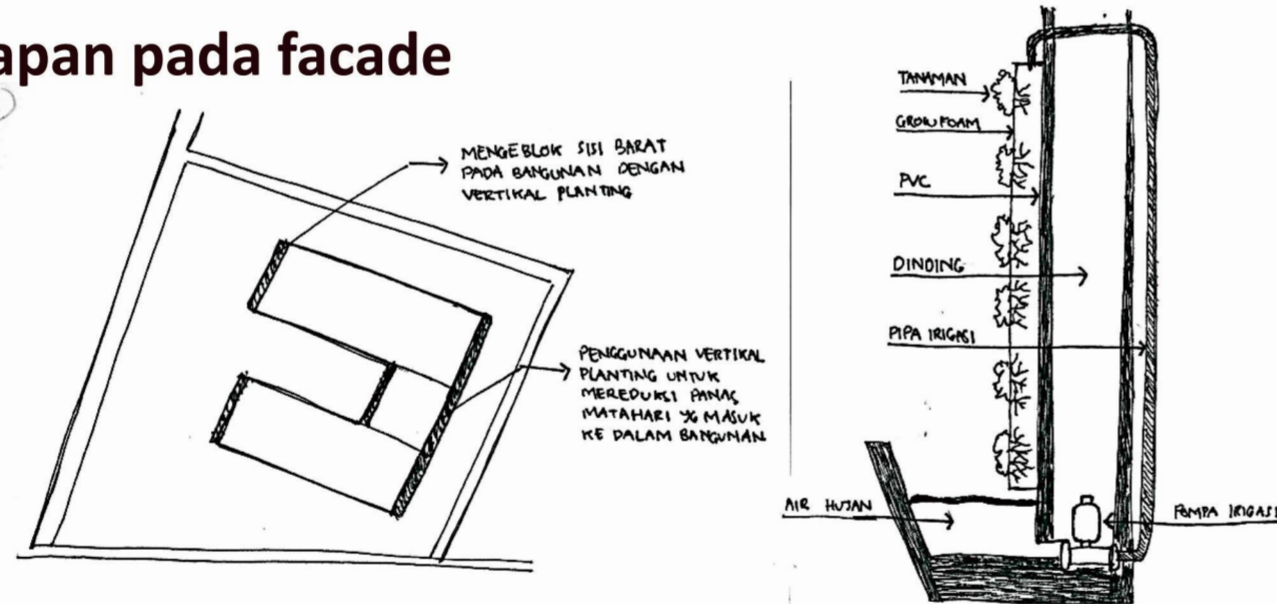 apan pada facade
MENGEBLOK SISI BARAT
PADA BANGUNAN DENGAN
VERTIKAL PLANTING
PENGGUNAAN VERTIKAL
PLANTING UNTUK
MEREDUKSI PANAS
MATAHARI YG MASUK
KE DALAM BANGUNAN
TANAMAN
GROWFOAM
PVC
DINDING
PIPA IRIGASI
AIR HUJAN
POMPA IRIGASI